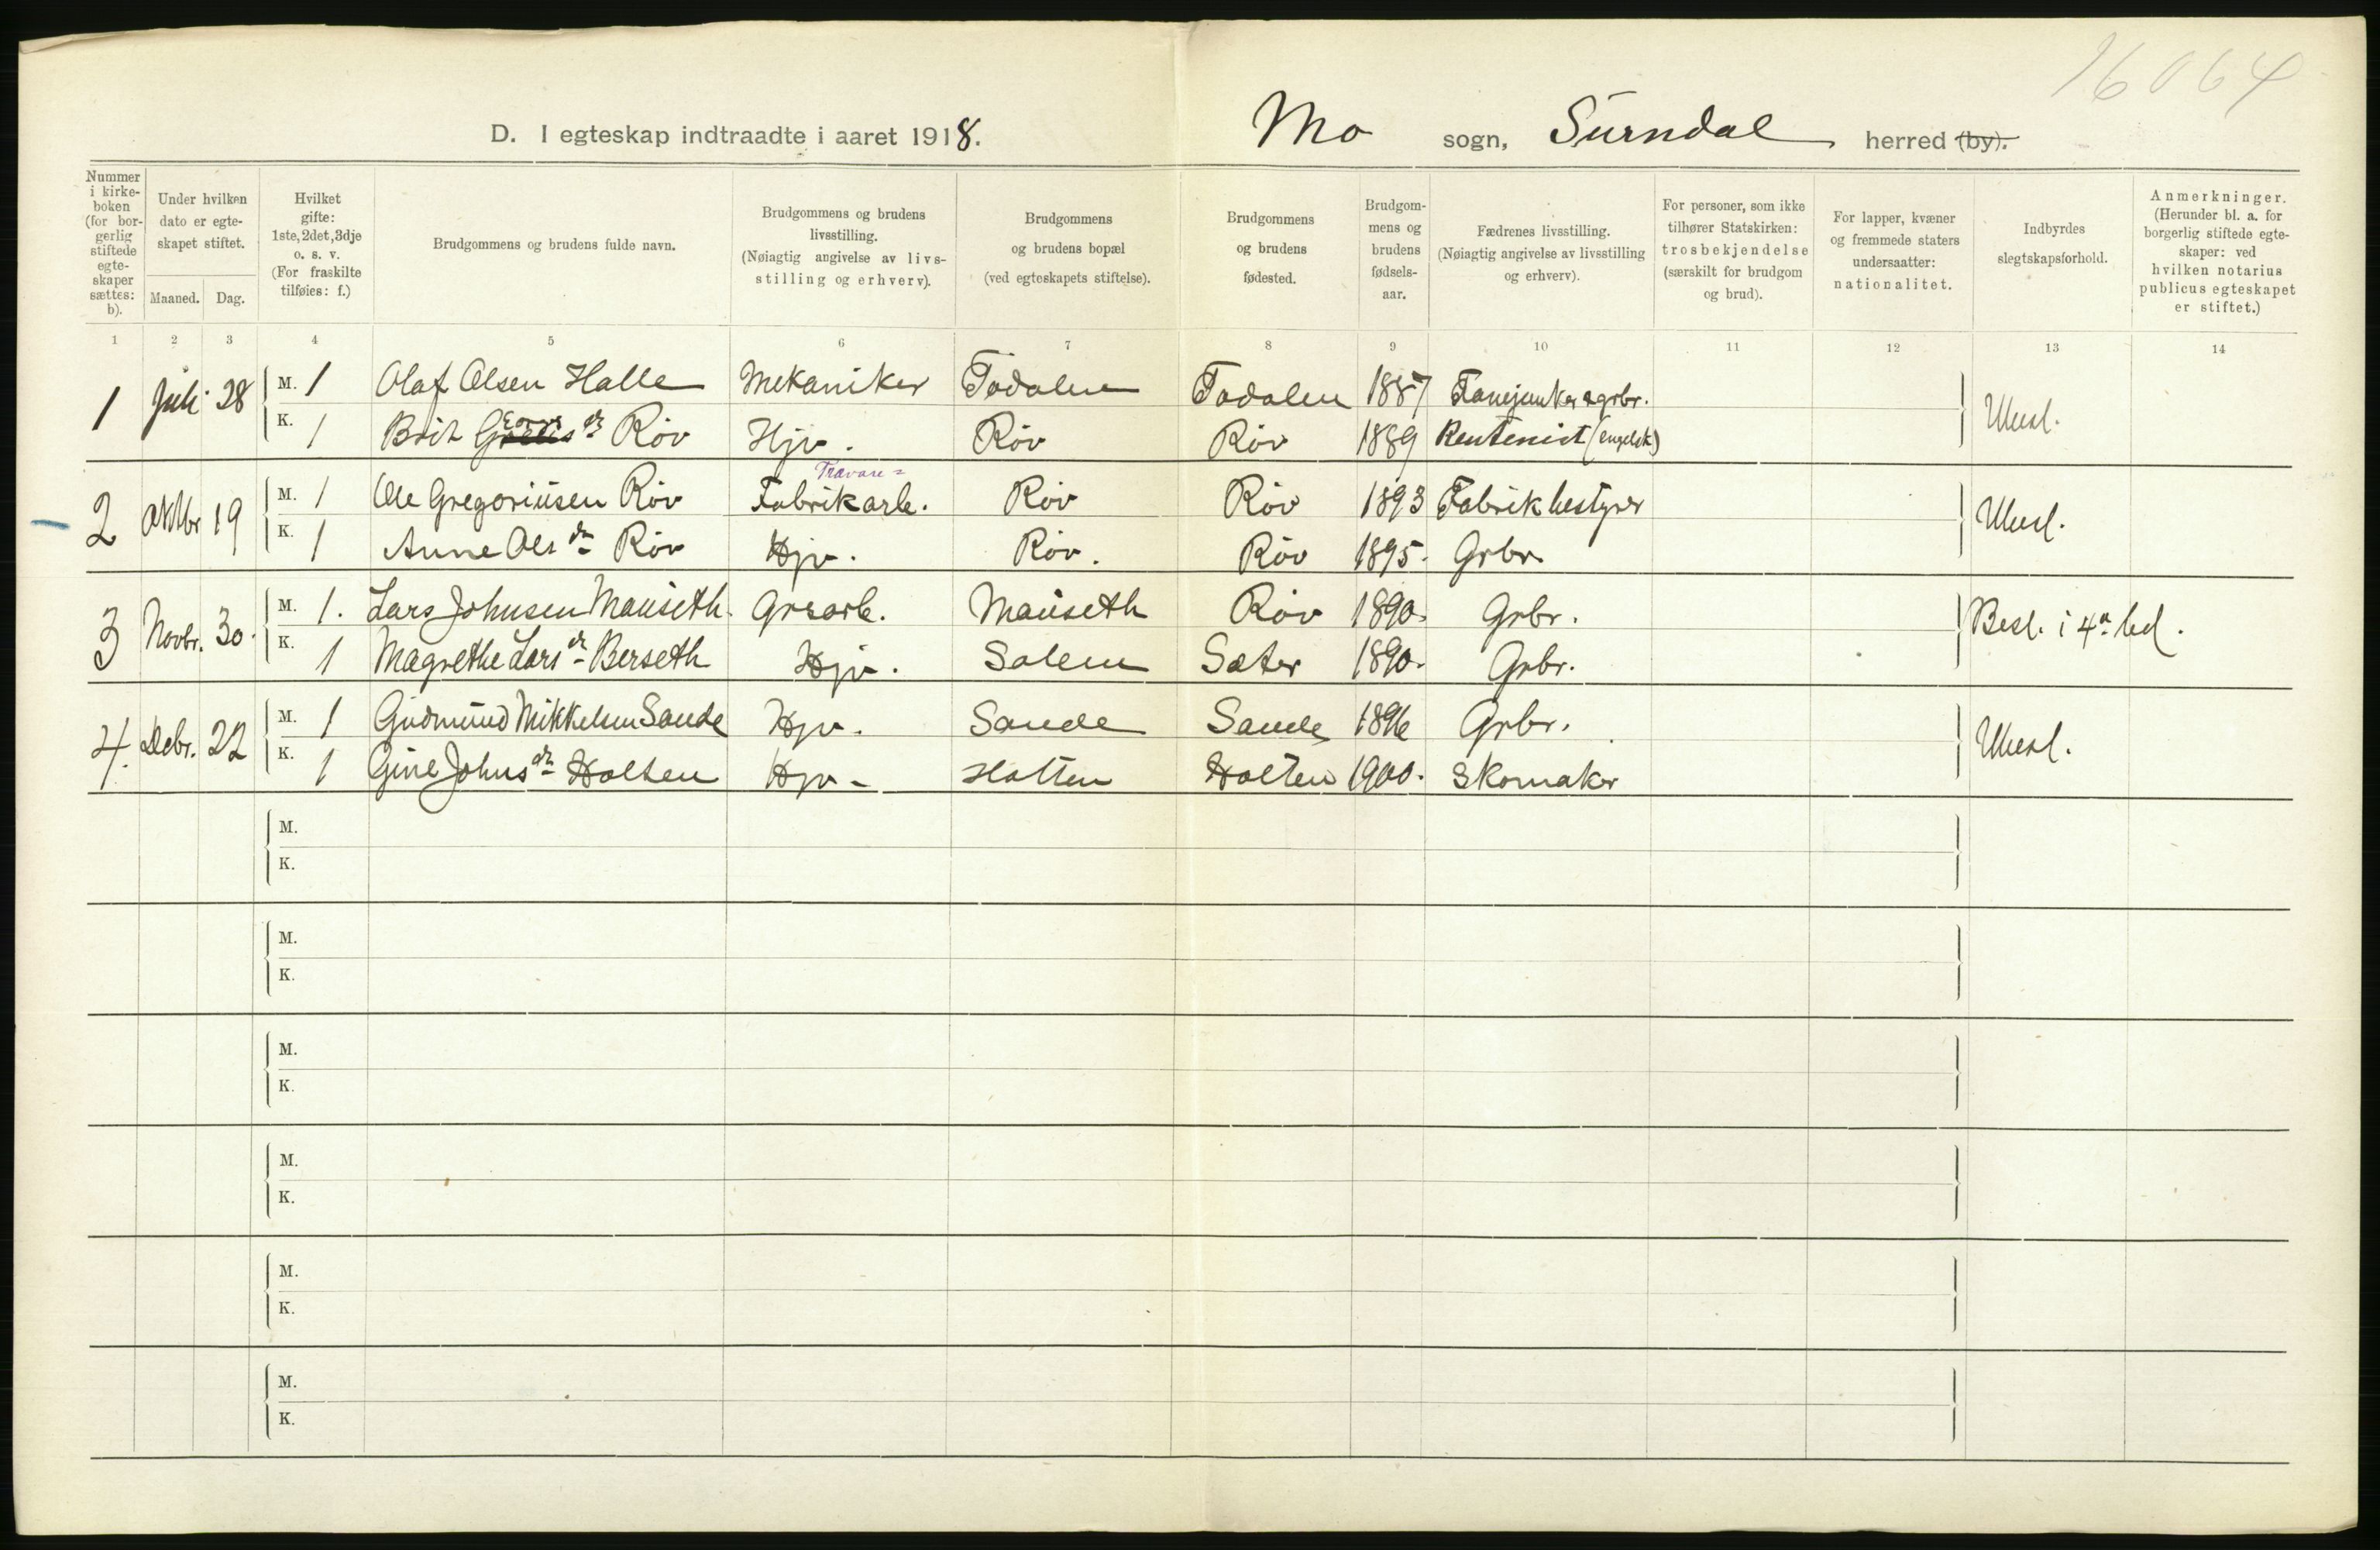 16064
D. I egteskap indtraadte i aaret 1918. Mo sogn, Surndal herred (by).
Nummer i kirke-boken (for bor-gerlig stiftede egte-skaper sættes: b).
Under hvilken dato er egte-skapet stiftet.
Maaned. Dag.
Hvilket gifte: 1ste, 2det, 3dje o. s. v. (For fraskilte tilføies: f.)
Brudgommens og brudens fulde navn.
Brudgommens og brudens livsstilling. (Nøiagtig angivelse av livs-stilling og erhverv).
Brudgommens og brudens bopæl (ved egteskapets stiftelse).
Brudgommens og brudens fødested.
Brudgom-mens og brudens fødsels-aar.
Fædrenes livsstilling. (Nøiagtig angivelse av livsstilling og erhverv).
For personer, som ikke tilhører Statskirken: trosbekjendelse (særskilt for brudgom og brud).
For lapper, kvæner og fremmede staters undersaatter: nationalitet.
Indbyrdes slegtskapsforhold.
Anmerkninger. (Herunder bl. a. for borgerlig stiftede egte-skaper: ved hvilken notarius publicus egteskapet er stiftet.)
1 2 3 4 5 6 7 8 9 10 11 12 13 14
1 Juli 28 M. 1 Olaf Olsen Halle Mekaniker Todalen Todalen 1887 Fanejunker & grbr. Ubesl.
K. 1 Brit Georgs dr Røv Hjv. Røv Røv 1889 Rentenist (engelsk)
Trævare=
2 Oktbr 19 M. 1 Ole Gregoriusen Røv Fabrikarb. Røv Røv 1893 Fabrikbestyrer Ubesl.
K. 1 Anne Ols dr Røv Hjv. Røv. Røv 1895. Grbr.
3 Novbr. 30. M. 1. Lars Johnsen Mauseth. Grsarb. Mauseth Røv 1890. Grbr. Besl. i 4de led.
K. 1 Magrethe Lars dr Berseth Hjv. Solem Sæter 1890. Grbr.
4. Debr. 22 M. 1 Gudmund Mikkelsen Sande Hjv. Sande Sande 1896 Grbr. Ubesl.
K. 1 Gine Johns dr Holten Hjv- Holten Holten 1900. Skomaker
M.
K.
M.
K.
M.
K.
M.
K.
M.
K.
M.
K.